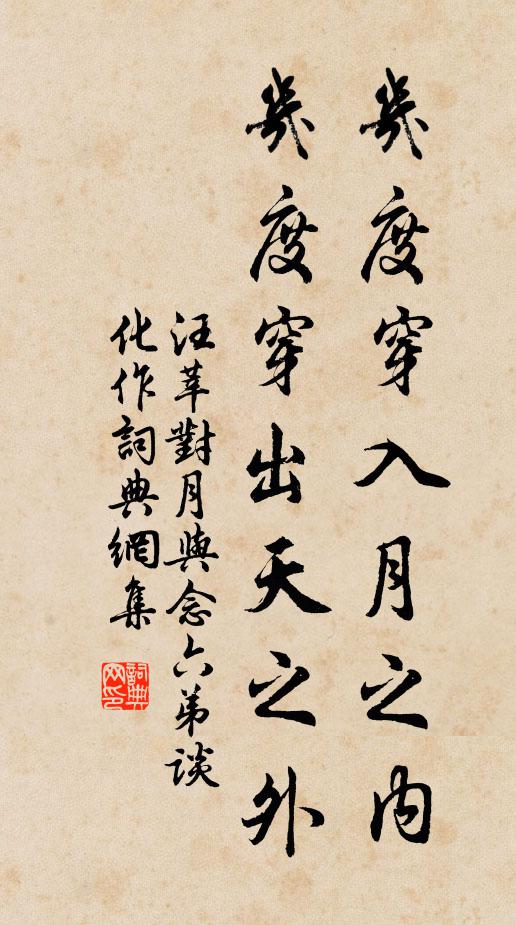 幾度穿入月之內
幾度穿出天之外
汪莘對月與念六弟談
化作詞典網集
詞典網印